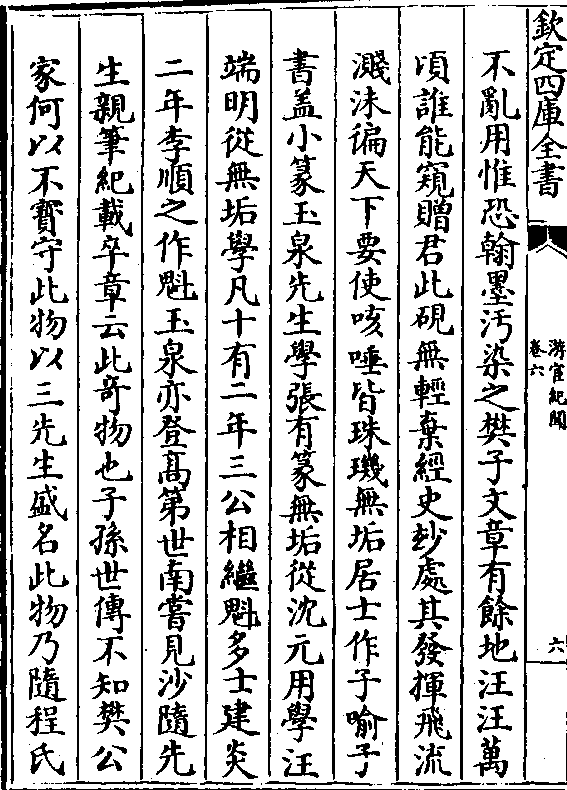 欽定四庫全書
游宦紀聞
卷六
六
不亂用惟恐翰墨汚染之樊子文章有餘地汪汪萬
頃誰能窺贈君此硯無輕棄經史妙處其發揮飛流
濺沫徧天下要使咳唾皆珠璣無垢居士作子喻子
書盖小篆玉泉先生學張有篆無垢從沈元用學汪
端明從無垢學凡十有二年三公相繼魁多士建炎
二年李順之作魁玉泉亦登髙第世南嘗見沙隨先
生親筆紀載卒章云此奇物也子孫世傳不知樊公
家何以不寳守此物以三先生盛名此物乃隨程氏